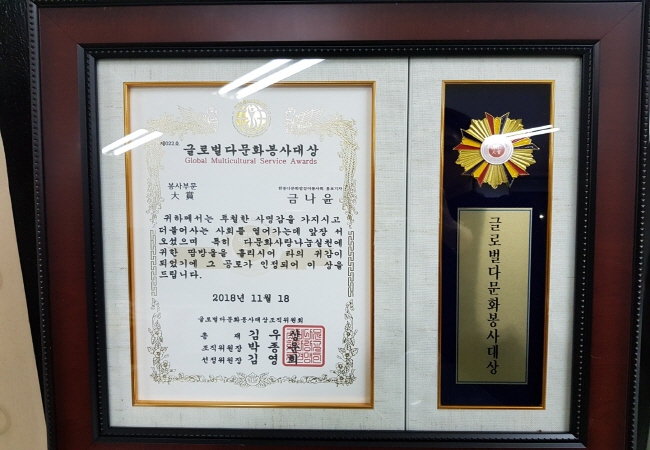 제022호
글로벌다문화봉사대상
Global Multicultural Service Awards
봉사부문
大賞
금나윤
귀하께서는 투철한 사명감을 가지시고
더불어사는 사회를 열어가는데 앞장 서
오셨으며 특히 다문화사랑나눔실천에
귀한 땀방울을 흘리시어 타의 귀감이
되었기에 그 공로가 인정되어 이 상을
드립니다.
2018년 11월 18
글로벌다문화봉사대상조직위원회
총 재 김 우 상
조직위원장 박 종 문
선정위원장 김 영 희
글로벌다문화봉사대상